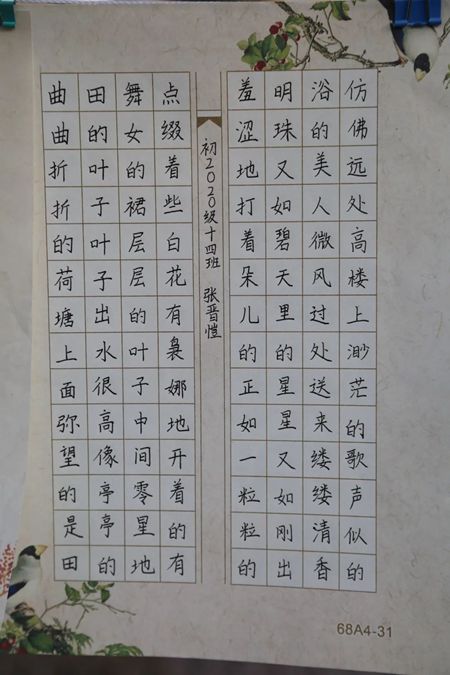 曲曲折折的荷塘上面弥望的是田
田的叶子叶子出水很高像亭亭的
舞女的裙层层的叶子中间零星地
点缀着些白花有袅娜地开着的有
初2020级十四班 张晋恺
羞涩地打着朵儿的正如一粒粒的
明珠又如碧天里的星星又如刚出
浴的美人微风过处送来缕缕清香
仿佛远处高楼上渺茫的歌声似的
68A4-31